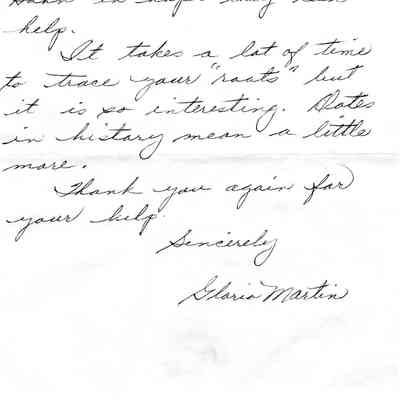 help.
It takes a lot of time
to trace your "roots" but
it is so interesting. Dates
in history mean a little
more.
Thank you again for
your help.
Sincerely
Gloria Martin